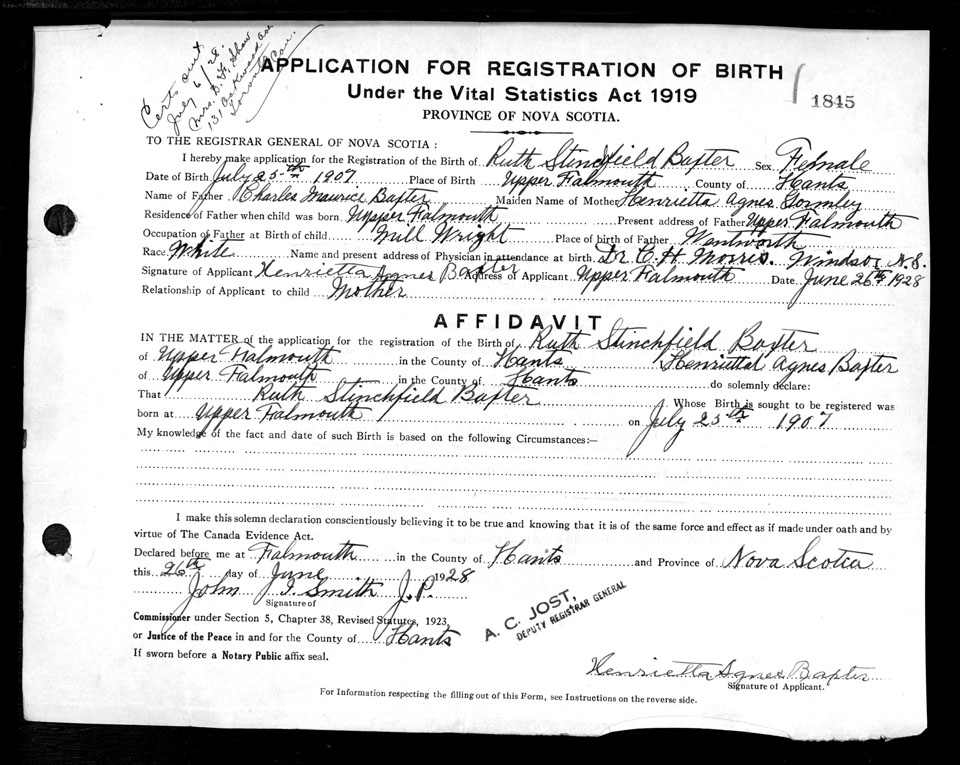 Certs out
July 6/28.
Mrs. D. H. Shaw
131 Oakwood Ave
Toronto Can.
APPLICATION FOR REGISTRATION OF BIRTH
Under the Vital Statistics Act 1919
PROVINCE OF NOVA SCOTIA.
1845
TO THE REGISTRAR GENERAL OF NOVA SCOTIA :
I hereby make application for the Registration of the Birth of Ruth Stinchfield Baxter Sex Female
Date of Birth July 25th 1907 Place of Birth Upper Falmouth County of Hants
Name of Father Charles Maurice Baxter Maiden Name of Mother Henrietta Agnes Gormley
Residence of Father when child was born Upper Falmouth Present address of Father Upper Falmouth
Occupation of Father at Birth of child Mill Wright Place of birth of Father Wentworth
Race White Name and present address of Physician in attendance at birth Dr C H Morris Windsor N.S.
Signature of Applicant Henrietta Agnes Baxter Address of Applicant Upper Falmouth Date June 26th 1928
Relationship of Applicant to child Mother
AFFIDAVIT
IN THE MATTER of the application for the registration of the Birth of Ruth Stinchfield Baxter
of Upper Falmouth in the County of Hants Henrietta Agnes Baxter
of Upper Falmouth in the County of Hants do solemnly declare:
That Ruth Stinchfield Baxter Whose Birth is sought to be registered was
born at Upper Falmouth on July 25th 1907
My knowledge of the fact and date of such Birth is based on the following Circumstances:—
I make this solemn declaration conscientiously believing it to be true and knowing that it is of the same force and effect as if made under oath and by
virtue of The Canada Evidence Act.
Declared before me at Falmouth in the County of Hants and Province of Nova Scotia
this 26th day of June 1928
John I. Smith J.P.
Signature of
Commissioner under Section 5, Chapter 38, Revised Statutes, 1923,
or Justice of the Peace in and for the County of Hants
If sworn before a Notary Public affix seal.
A. C. JOST,
DEPUTY REGISTRAR GENERAL
Henrietta Agnes Baxter
Signature of Applicant.
For Information respecting the filling out of this Form, see Instructions on the reverse side.